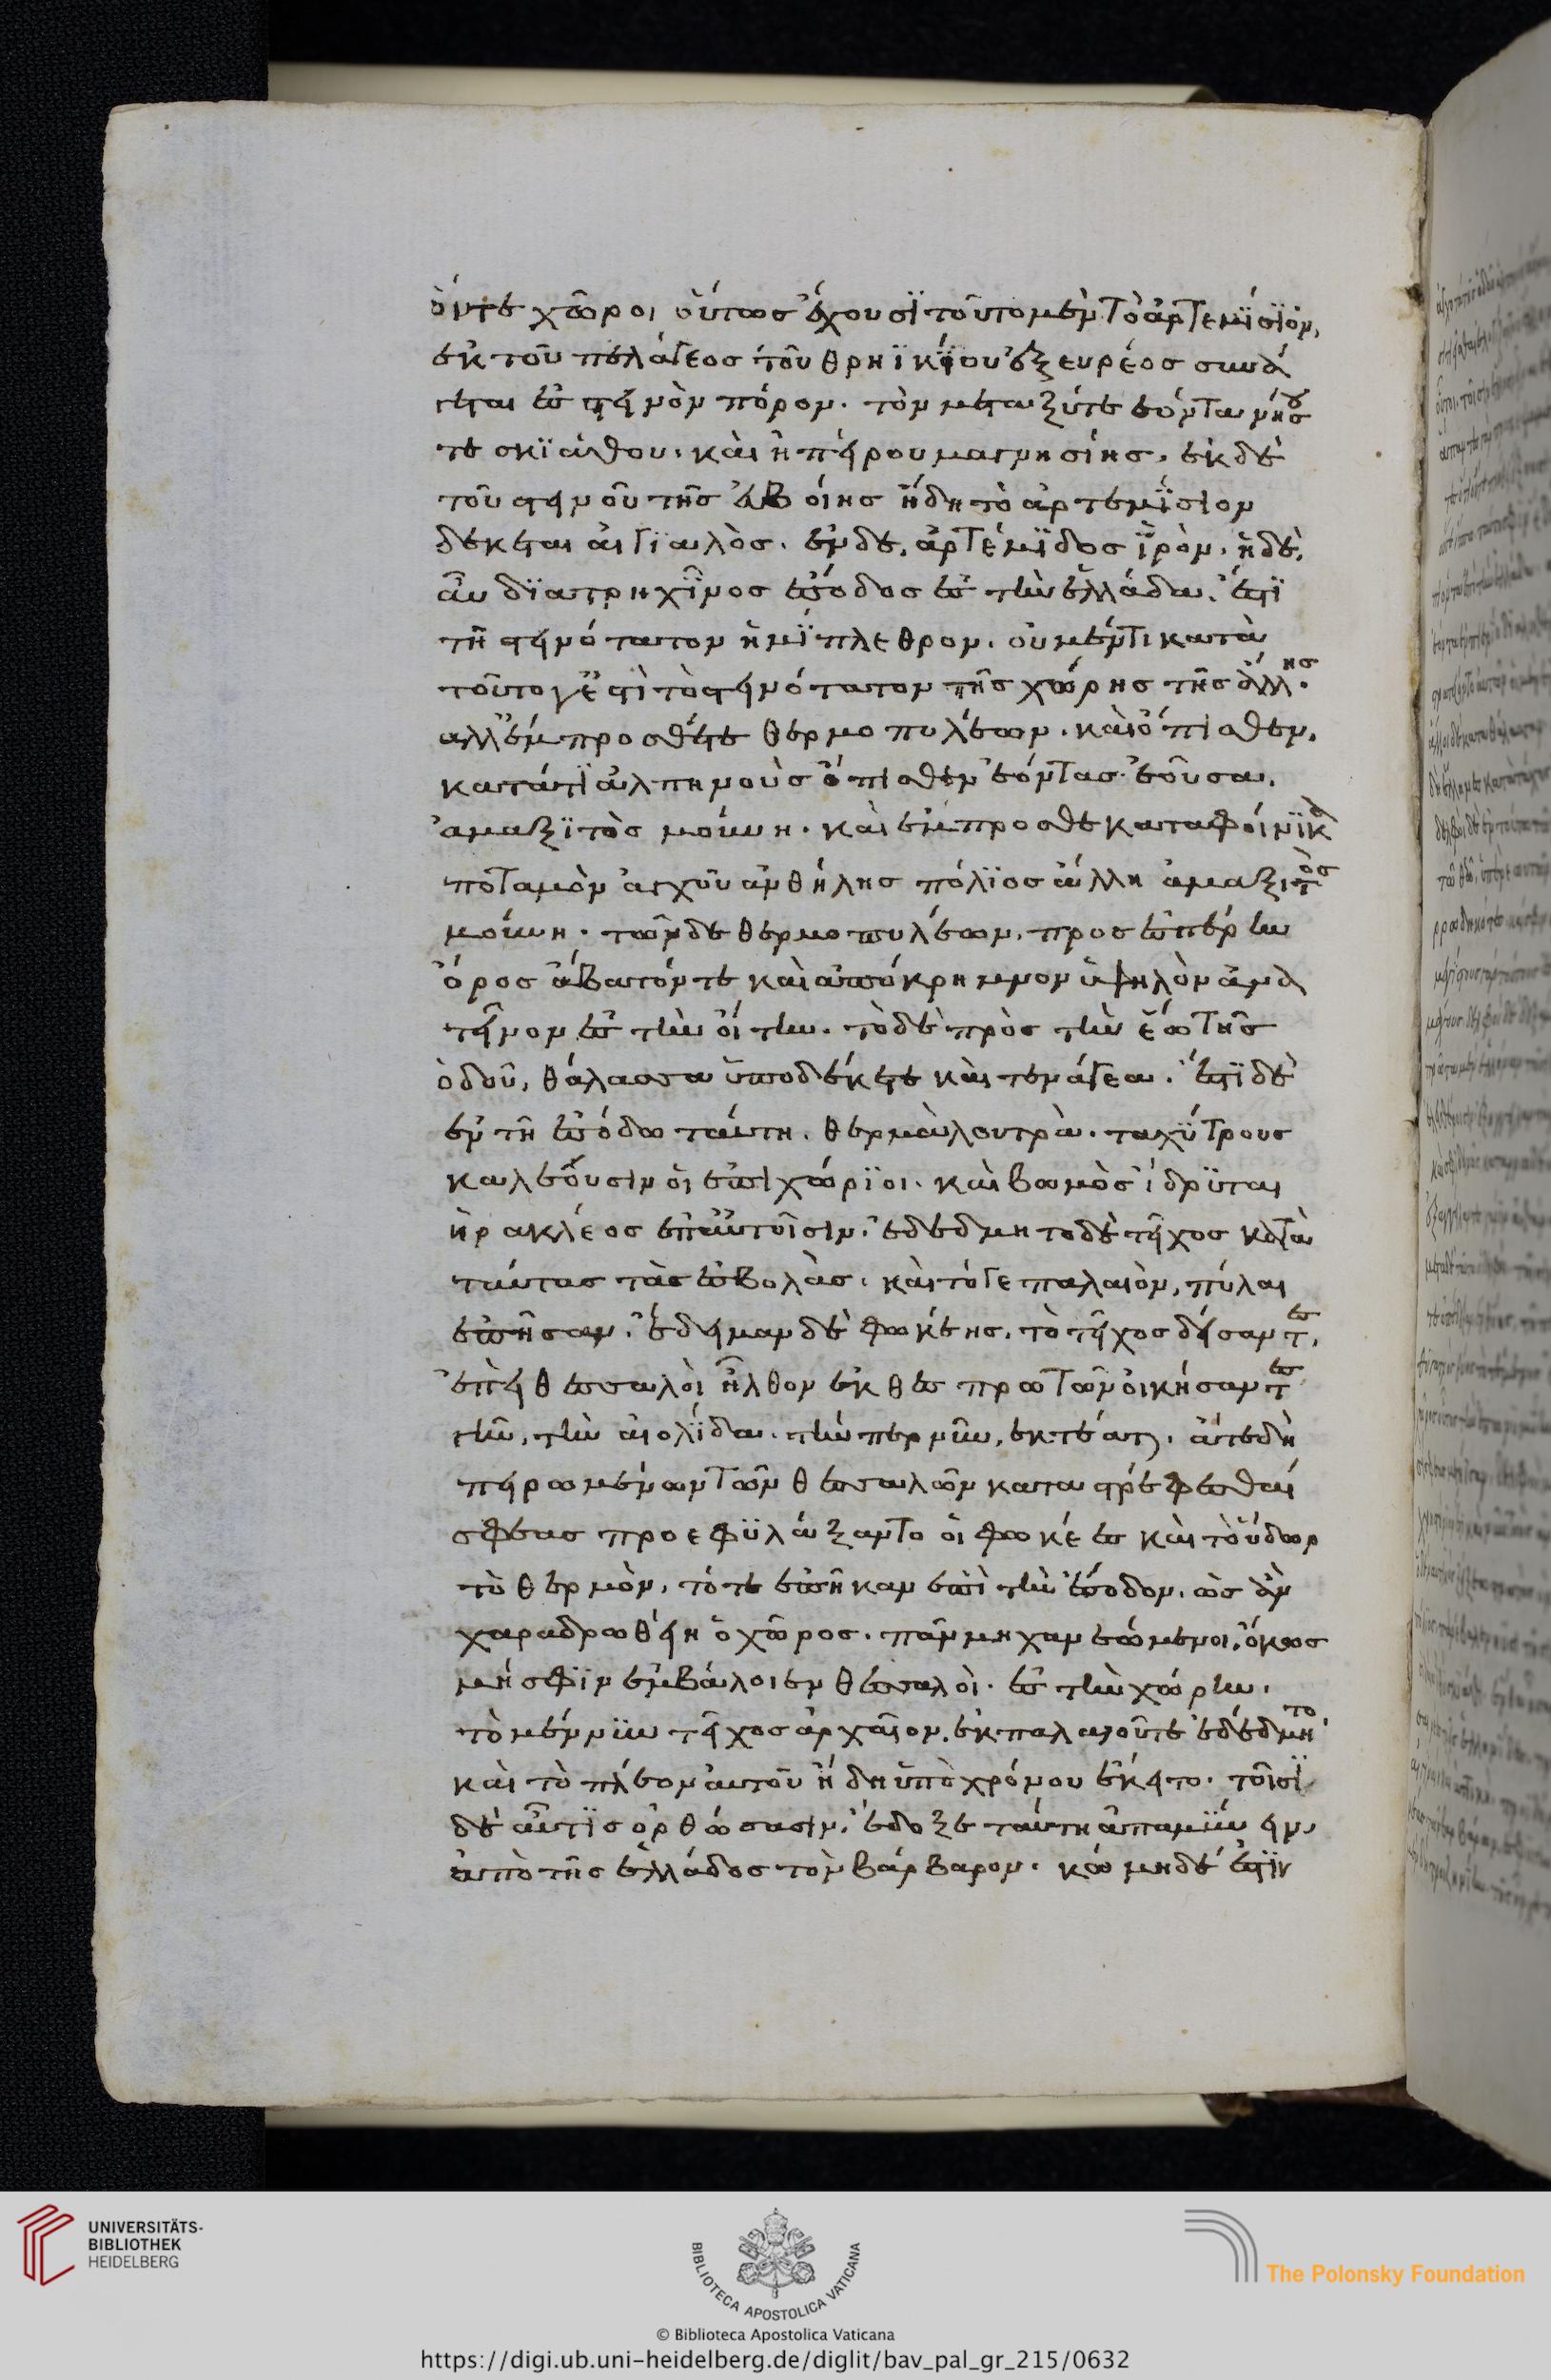 ὁι τε χῶροι ὁύτως ἔχουσϊ τοῦτο μὲν τὸ ἀρτεμΐσϊον,
ἐκ τοῦ πελάγεος τοῦ θρηϊκΐου ἐξ ευρέος συνά
γεται ἐς στεινὸν πόρον. τὸν μεταξύτε ἐόντα νήσου
τε σκϊάθου. καὶ ἠπείρου μαγνησίης. ἐκ δὲ
τοῦ στεινοῦ τῆς ἐυβοίης ἤδη τὸ ἀρτεμΐσιον
δεκεται ἀιγϊαλὸς. ἐν δε, ἀρτέμϊδος ἱρὸν. ἡ δὲ,
ἂυ δϊατρηχῖνος ἔσοδος ἐς τὴν ἑλλάδα. ἔστϊ
τῆ στεινότατον ἡμΐπλεθρον. ου μέντι κατὰ
τοῦτο γ ἐστὶ τὸ στεινότατον τῆς χώρης τῆς ἄλλης.
αλλ ἔμπροσθέτε θερμοπυλέων. καὶ ὄπισθεν.
κατάτϊ ἀλπηνοὺς ὄπισθεν ἐόντας ἐοῦσα.
ἁμαξϊτὸς μούνη. καὶ ἔμπροσθε κατα φοίνϊκα
ποταμὸν ἀγχοῦ ἀνθήλης πόλϊος ἄλλη ἁμαξιτὸς
μούνη. τῶν δε θερμοπυλέων, προς ἑσπέρην
ὄρος ἄβατόν τε καὶ ἀπόκρημνον ὑψηλὸν ἀνὰ
τεῖνον ἐς τὴν οἴτην. τὸ δὲ πρὸς τὴν ἕω τῆς
ὁδοῦ, θάλασσα ὑποδέκετε καὶ τενάγεα. ἔστϊ δὲ
ἐν τῆ ἐσόδω ταύτη. θερμὰ λουτρὰ. τα χύτρους
καλέουσιν ὁι ἐπιχώρϊοι. καὶ βωμὸς ἵδρϋται
ἡρακλέος ἐπ αὐτοῖσιν. ἐδεδμητο δὲ τεῖχος κατὰ
ταύτας τὰς ἐσβολὰς. καὶ τόγε παλαιὸν, πύλαι
ἐπῆσαν. ἔδειμαν δὲ φωκέης. τὸ τεῖχος δείσαντες,
ἐπεὶ θεσσαλὸι ἦλθον ἐκ θεσπρωτῶν οἰκήσαντες
γῆν, τὴν ἀιολΐδα. τήν περ νῦν, ἐκτέατ. ἅτε δὴ
πειρωμένων τῶν θεσσαλῶν καταστρέφεσθαί
σφεας προεφϋλάξαντο ὁι φωκέες καὶ τὸ ὕδωρ
τὸ θερμὸν, τότε ἐπῆκαν ἐπὶ τὴν ἔσοδον. ὡς ἂν
χαραδρωθείη ὁ χῶρος. πᾶν μηχανεώμενοι, ὅκως
μή σφϊν ἐμβάλοιεν θεσσαλὸι. ἐς τὴν χώρην.
τὸ μέν νϋν τεῖχος ἀρχαῖον. ἐκ παλαιοῦ τε ἐδέδμητο
καὶ τὸ πλέον ἀυτοῦ ἤδη ὑπὸ χρόνου ἔκειτο. τοῖσϊ
δὲ αὖτϊς ὀρθώσασιν, ἔδοξε ταύτη ἀπαμΰνειν,
ἀπὸ τῆς ἑλλάδος τὸν βάρβαρον. κώμη δέ ἐστϊν
UNIVERSITÄTS-
BIBLIOTHEK
HEIDELBERG
BIBLIOTECA APOSTOLICA VATICANA
© Biblioteca Apostolica Vaticana
The Polonsky Foundation
https://digi.ub.uni-heidelberg.de/diglit/bav_pal_gr_215/0632